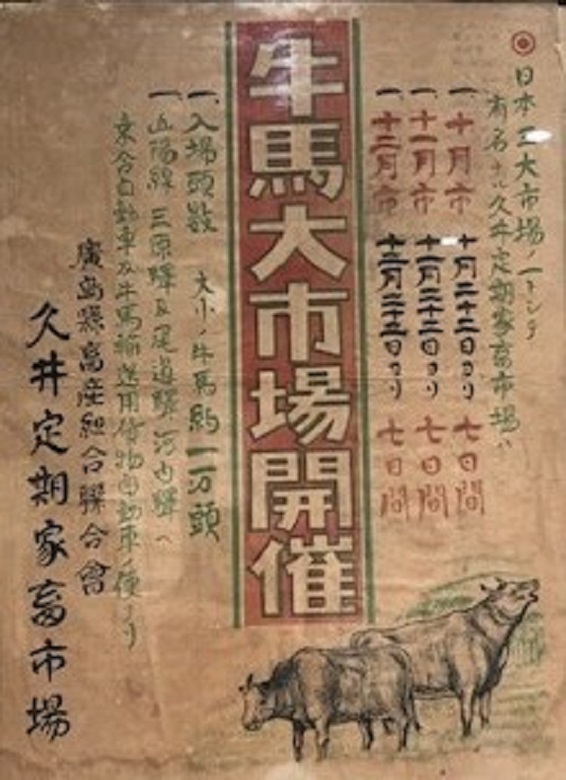 日本三大市場ノ一トシテ
有名ナル久井定期家畜市場ハ
一、十月市 十月二十二日ヨリ 七日間
一、十一月市 十一月二十二日ヨリ 七日間
一、十二月市 十二月二十二日ヨリ 七日間
牛馬大市場開催
一、入場頭数 大小ノ牛馬約一万頭
一、山陽線 三原驛及尾道驛 河内驛ヘ
乗合自動車及牛馬輸送用貨物自動車ノ便アリ
廣島縣畜産組合聯合會
久井定期家畜市場